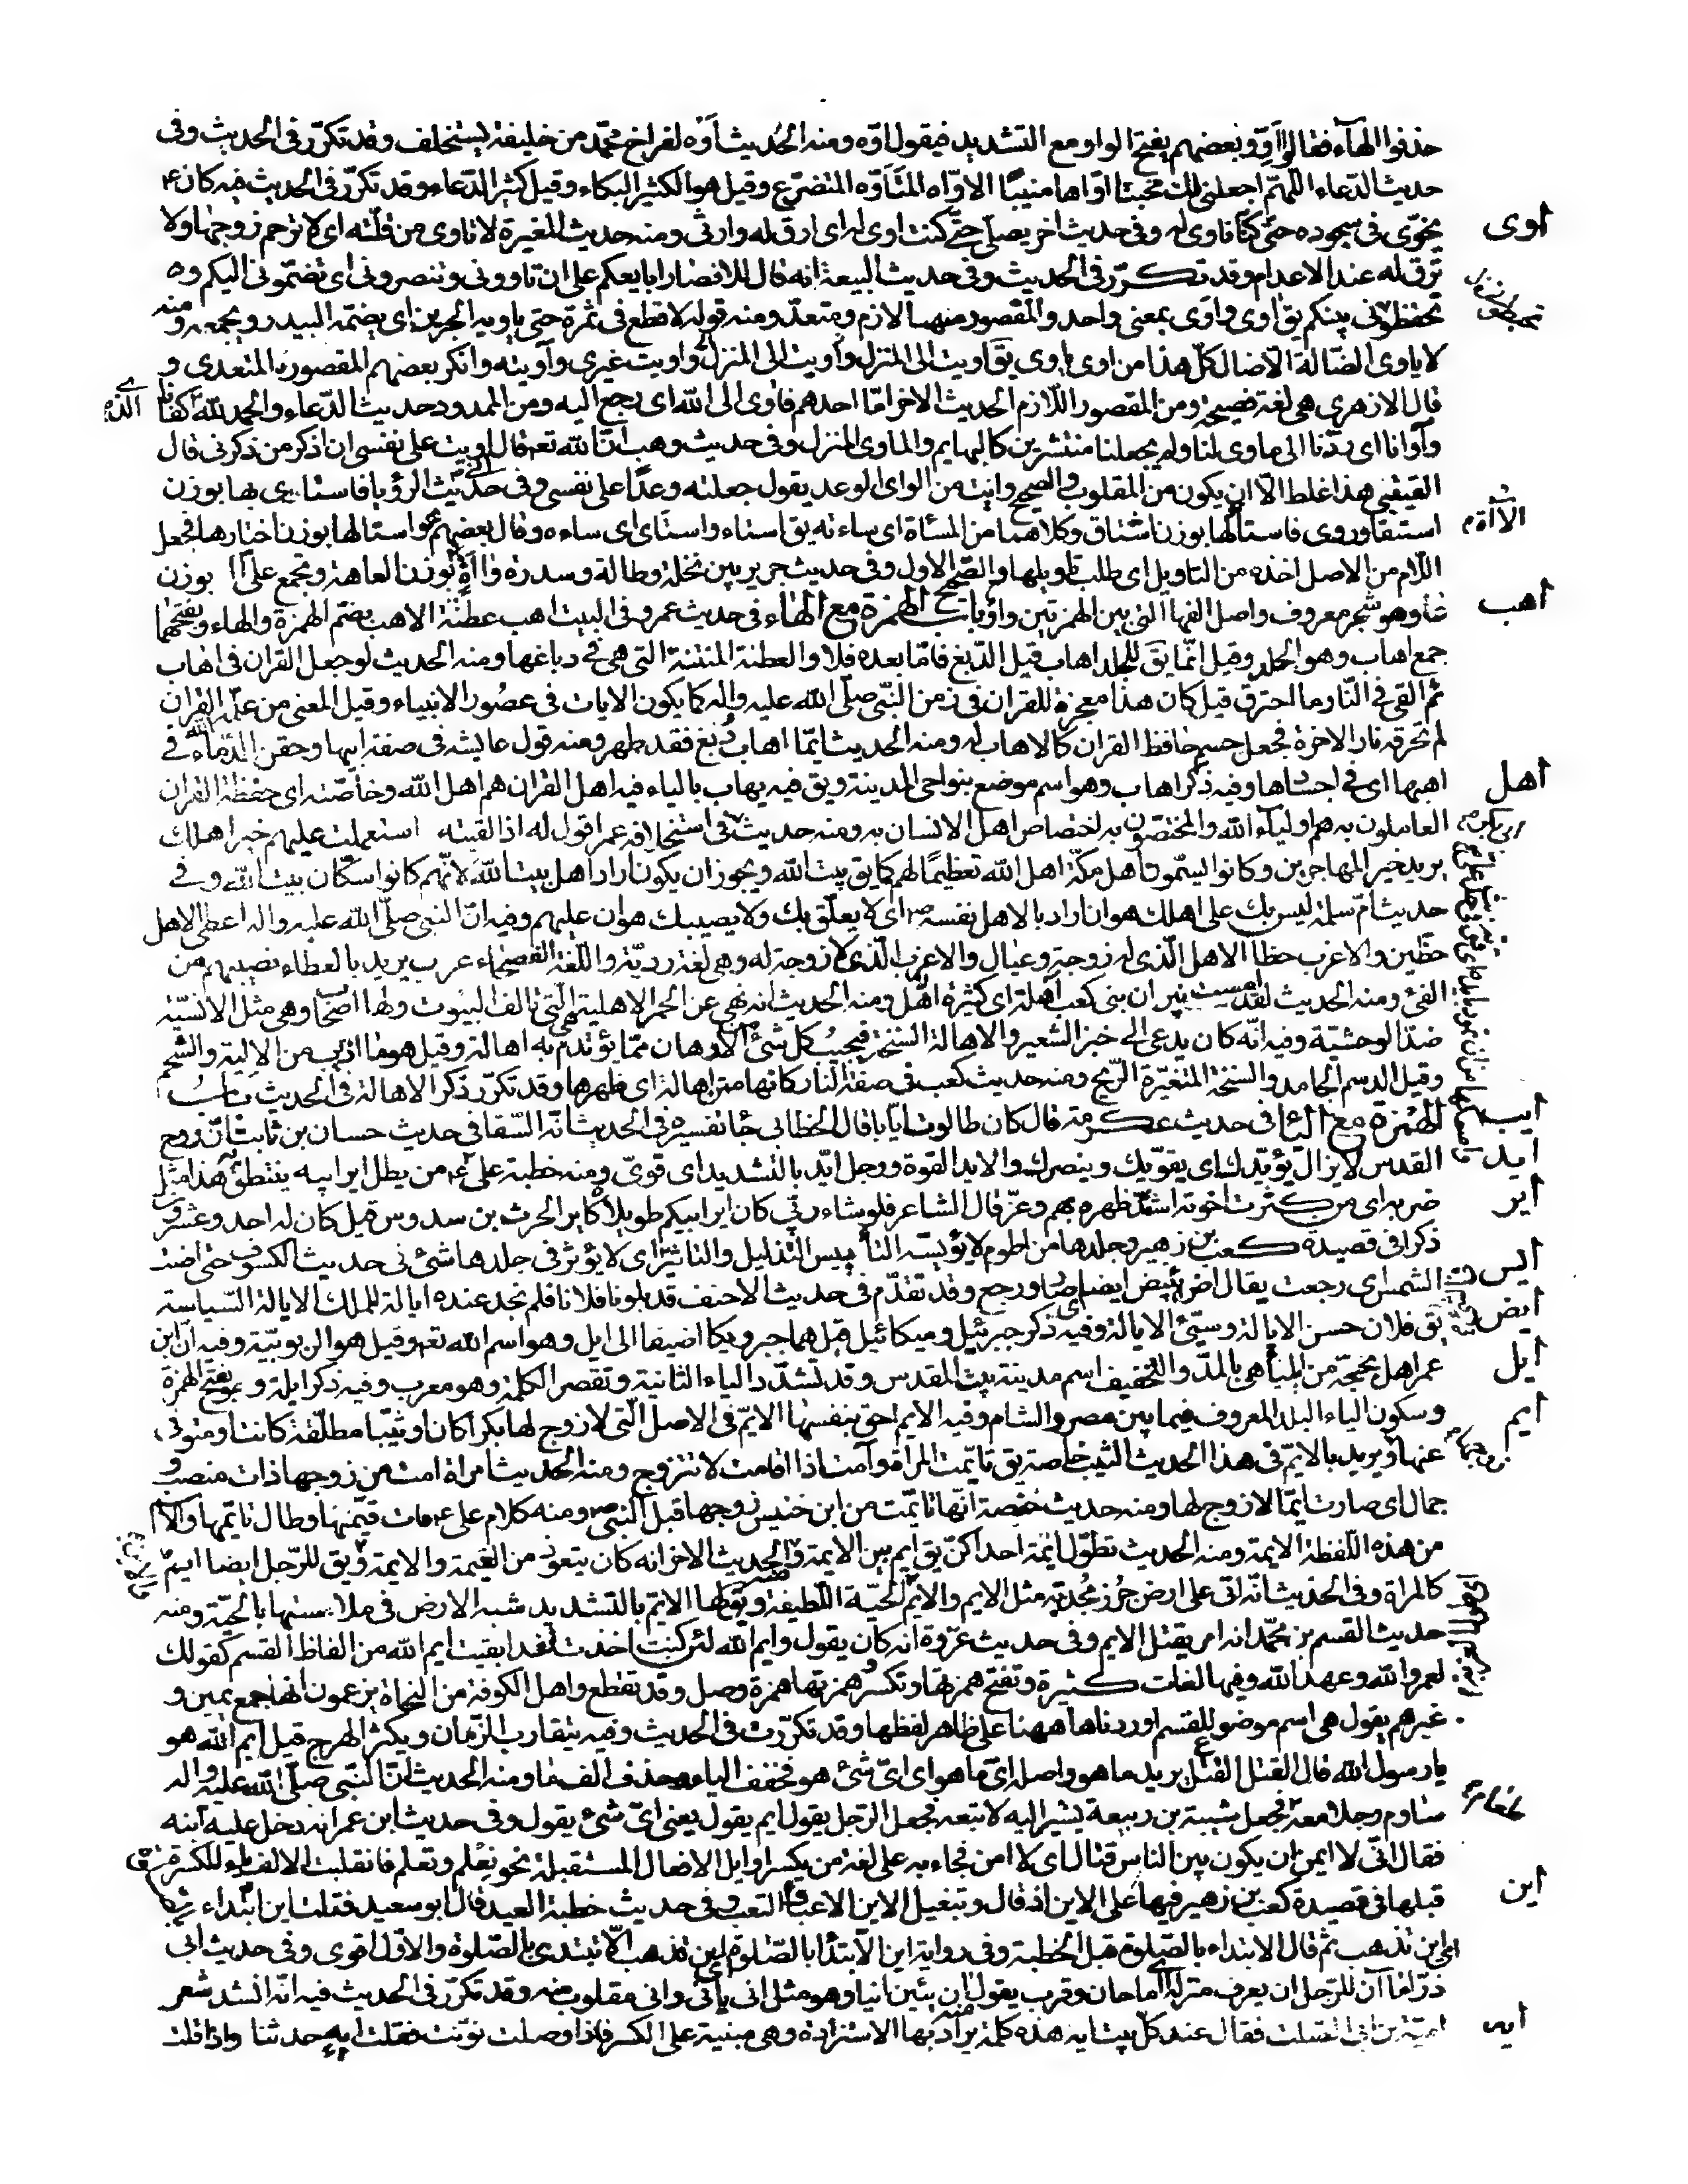 حذفوا الهآء فقالوا اَوِّ وبعضهم يفتح الواو مع التشديد فيقول اوّه ومنه الحديث اَوّه لفراخ محمّد من خليفة يستخلف وقد تكرّر فى الحديث وفى
حديث الدّعاء اللّهمّ اجعلنى لك مخبتا اوّاها منيبًا الاوّاه المتَاَوّه المتضرّع وقيل هو الكثير البكاء وقيل كثير الدّعاء وقد تكرّر فى الحديث فيه كان ع
اوى
يخوّى فى سجوده حتّى كنّا ناوى له وفى حديث اخر يصلّى حتّى كنت اوى له اى ارق له وارثى ومنه حديث المغيرة لا تاوى من قلّته اى لا ترحم زوجها ولا
ترق له عند الاعدام وقد تكرّر فى الحديث وفى حديث البيعة انه قال للانصار ابايعكم على ان تاوونى وتنصرونى اى تضمّونى اليكم و
تحفظونى بينكم يق اوى واوَى بمعنى واحد والمقصور منهما لازم ومتعدّ ومنه قوله لا قطع فى ثمرة حتى ياويه الجرين اى يضمّه البيدر ويجمعه ومنه
لا ياوى الضّالة الّا ضال كلّ هذا من اوى ياوى يقَ اويت الى المنزل وأويت الى المنزل واويت غيرى وآويته وانكر بعضهم المقصور المتعدى و
قال الازهرى هى لغة فصيحة ومن المقصور اللّازم الحديث الاخر امّا احدهم فاوى الى الله اى رجع اليه ومن الممدود حديث الدّعاء والحمد لله الذى كفانا
وآوانا اى ردّنا الى ماوى لنا ولم يجعلنا منتشرين كالبهايم والماوى المنزل وفى حديث وهب انّ الله تعه قال اويت على نفسى ان اذكر من ذكرنى قال
القيتبى هذا غلط الّا ان يكون من المقلوب والصحيح وايت من الواى الوعد يقول جعلته وعدًا على نفسى وفى حديث الرؤيا فاستاى بها بوزن
استقا وروى فاستالها بوزن اشتاق وكلاهما من المسأة اى ساءته يق استاء واستاى اى ساءه وقال بعضهم هو استالها بوزن اختارها فجعل
اللّام من الاصل اخذه من التاويل اى طلب تاويلها والصّحيح الاول وفى حديث جرير بين نخلة وضالة وسدرة واآة بوزن العاهة وتجمع على آا بوزن
اهب
عاه وهو شجر معروف واصل الفها التى بين الهمزتين واو باب الهمزة مع الهاء فى حديث عمر وفى البيت اهب عطنة الاهب بضم الهمزة والهاء وبفتحهما
جمع اهاب وهو الجلد وقيل انّما يقَ للجلد اهاب قبل الدّبغ فامّا بعده فلا والعطنة المنتنة التى هى فى دباغها ومنه الحديث لو جعل القران فى اهاب
ثم القى فى النّار ما احترق قيل كان هذا معجزة للقران فى زمن النبّى صلّى الله عليه واله كما يكون الايات فى عصور الانبياء وقيل المعنى من علّمه الله القران
لم تحرقه نار الاخرة فجعل جسم حافظ القران كالاهاب له ومنه الحديث ايّما اهاب دُبغ فقد طهر ومنه قول عايشه فى صفة ابيها وحقن الدّماء فى
اهل
اهبها اى فى اجسادها وفيه ذكر اهاب وهو اسم موضع بنواحى المدينة ويق فيه يهاب بالياء فيه اهل القران هم اهل الله وخاصّته اى حفظة القران
العاملون به هم اولياء الله والمختصّون به اختصاص اهل الانسان به ومنه حديث فى استخلافه عمر اقول له اذا لقيته استعملت عليهم خير اهلك
يريد خير المهاجرين وكانوا يسّمون اهل مكّة اهل الله تعظيمًا لهم كما يق بيت الله ويجوز ان يكون اراد اهل بيت الله لانّهم كانوا سكّان بيت الله وفى
حديث امّ سلمة ليس بك على اهلك هوان اراد بالاهل نفسه ص اى لا يعلّق بك ولا يصيبك هوان عليهم وفيه انّ النبى صلّى الله عليه واله اعطى الاهل
حظّين والاعزب حظا الاهل الّذى له زوجة وعيال والاعزب الّذى لا زوجة له وهى لغة رديّة واللّغة الفصحاء عزب يريد بالعطاء نصيبهم من
الفئ ومنه الحديث لقد امست نيران بنى كعب آهلة اى كثيرة اهل ومنه الحديث انه نهى عن الحمر الاهلية هى الّتى تالف البيوت ولها اصحاب وهى مثل الانسيّة
ضدّ الوحشيّة وفيه انّه كان يدعى الى خبز الشعير والاهالة السّنخة فيجيب كل شئ من الادهان ممّا يؤتدم به اهالة وقيل هو ما اذيب من الالية والشّحم
وقيل الدسم الجامد والسنخة المتغيّرة الرّيح ومنه حديث كعب فى صفة النار كانها متن اهالة اى ظهرها وقد تكرّر ذكر الاهالة فى الحديث باب
ايب
الهمزة مع الياء فى حديث عكرمة قال كان طالوت ايّابا قال الخطابى جا تفسيره فى الحديث انّه السّقا فى حديث حسان بن ثابت انّ روح
ايد
القدس لا يزال يؤيّدك اى يقوّيك وينصرك والايد القوة ورجل ايّد بالتشديد اى قوىّ ومنه خطبة على ع من يطل اير ابيه ينتطق به هذا مثل
اير
ضربه اى من كثرت اخوته اشتدّ ظهره بهم وعزّ قال الشاعر فلو شاء ربّى كان اير ابيكم طويلا كاير الحرث بن سدوس قيل كان له احد وعشرون
ايس
ذكرا فى قصيدة كعب بن زهير وجلدها من اطوم لا يؤيسّه التأييس التذليل والتاثير اى لا يؤثر فى جلدها شئ فى حديث الكسوف حتى اضت
ايض
الشمس اى رجعت يقال اض يئيض ايضا اى صار ورجع وقد تقدّم فى حديث الاحنف قد بلونا فلانا فلم نجد عنده ايالة للملك الايالة السّياسة
ايل
يق فلان حسن الايالة وسيّئ الايالة وفيه ذكر جبرئيل وميكائيل قيل هما جبر وميكا اضيفا الى ايل وهو اسم الله تعه وقيل هو الربوبيّة وفيه انّ ابن
عمر اهل بحجّة من ايلياء هى بالمدّ والتخفيف اسم مدينة بيت المقدس وقد تشدّد الياء الثانية وتقصر الكلمة وهو معرب وفيه ذكر ايلة وهو بفتح الهمزة
ايم
وسكون الياء البلد المعروف فيما بين مصر والشام وفيه الايم احق بنفسها الايمّ فى الاصل الّتى لا زوج لها بكرا كان او ثيّبا مطلّقة كانت او متوفّى
عنها زوجها ويريد بالايمّ فى هذا الحديث الثيّب خاصة يق تايّمت المراة وآمت اذا اقامت لا تتزوج ومنه الحديث امراة امت من زوجها ذات منصب و
جمال اى صارت ايّما لا زوج لها ومنه حديث حفصة انّها تايّمت من ابن خنيس زوجها قبل النبى ص ومنه كلام على ع مات قيّمنها وطال تايّمها والاسم
من هذه اللّفظة الايمة ومنه الحديث تطول ايمة احداكنّ يق ايم بين الايمة والحديث الاخر انه كان يتعوّذ من الغيمة والايمة ويق للرّجل ايضا ايمّ
كالمراة وفى الحديث انّه اتى على ارض جُرز مجُدبة مثل الايم والايّم الحيّة اللّطيفة ويق لها الايّم بالتشديد شبه الارض فى ملاستها بالحيّة ومنه
حديث القسم بن محمّد انه امر بقتل الايم وفى حديث عروة انه كان يقول وايم الله لئن كنت اخذت لقد ابقيت ايم الله من الفاظ القسم كقولك
لعمر الله وعهد الله وفيها لغات كثيرة وتفتح همزتها وتكسر همزتها همزة وصل وقد تقطع واهل الكوفة من النحاة يزعمون انها جمع يمين و
غيرهم يقول هى اسم موضوع للقسم اوردناها ههنا على ظاهر لفظها وقد تكرّرت فى الحديث وفيه يتقارب الزّمان ويكثر الهرج قيل ايم الله هو
يا رسول الله قال القتل القتل يريد ما هو واصله اىّ ما هو اى اىّ شئ هو فخفف الياء وحذف الف ما ومنه الحديث انّ النّبى صلّى الله عليه واله
ساوم رجلا معه فجعل شيبة بن ربيعة يشير اليه لا تبعه فجعل الرّجل يقول ايم يقول يعنى اىّ شئ يقول وفى حديث ابن عمر انه دخل عليه ابنه
فقال انّى لا ايمن ان يكون بين الناس قتال اى لا امن فجاء به على لغة من يكسر اوايل الافعال المستقبلة نحو نِعلم وتعلم فانقلبت الالف ياء للكسرة
اين
قبلها فى قصيدة كعب بن زهير فيها على الاين ارقال وتبغيل الاين الاعياء والتعب وفى حديث خطبة العيد قال ابو سعيد فقلت اين ابتداء
اى اين تذهب ثم قال الابتداء بالصّلوة قبل الخطبة وفى رواية اين الابتدا بالصّلوة اى اين تذهب الّا تبتدئ بالصّلوة والاوّل اقوى وفى حديث ابى
ذرّ اما آن للرّجل ان يعرف منزله اى اما حان وقرب يقول ان يئين اينا وهو مثل انى يانى وانى مقلوب منه وقد تكرّر فى الحديث فيه انّه انشد شعر
ايه
اميّة بن ابى الصّلت فقال عند كلّ بيت ايه هذه كلمة يراد بها الاستزادة وهى مبنية على الكسر فاذا وصلت نوّنت فقلت ايهٍ حدثنا واذا قلت